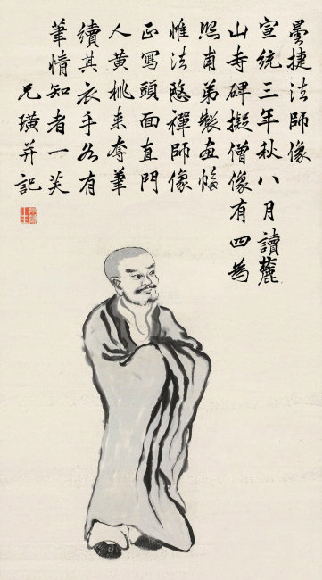 曇捷法師像
宣統三年秋八月讀麓
山寺碑擬僧像有四為
熙甫弟製畫幅
惟法愍禪師像
正寫頭面直門
人黃桃來奪筆
續其衣手各有
筆情知者一笑
兄璜并記